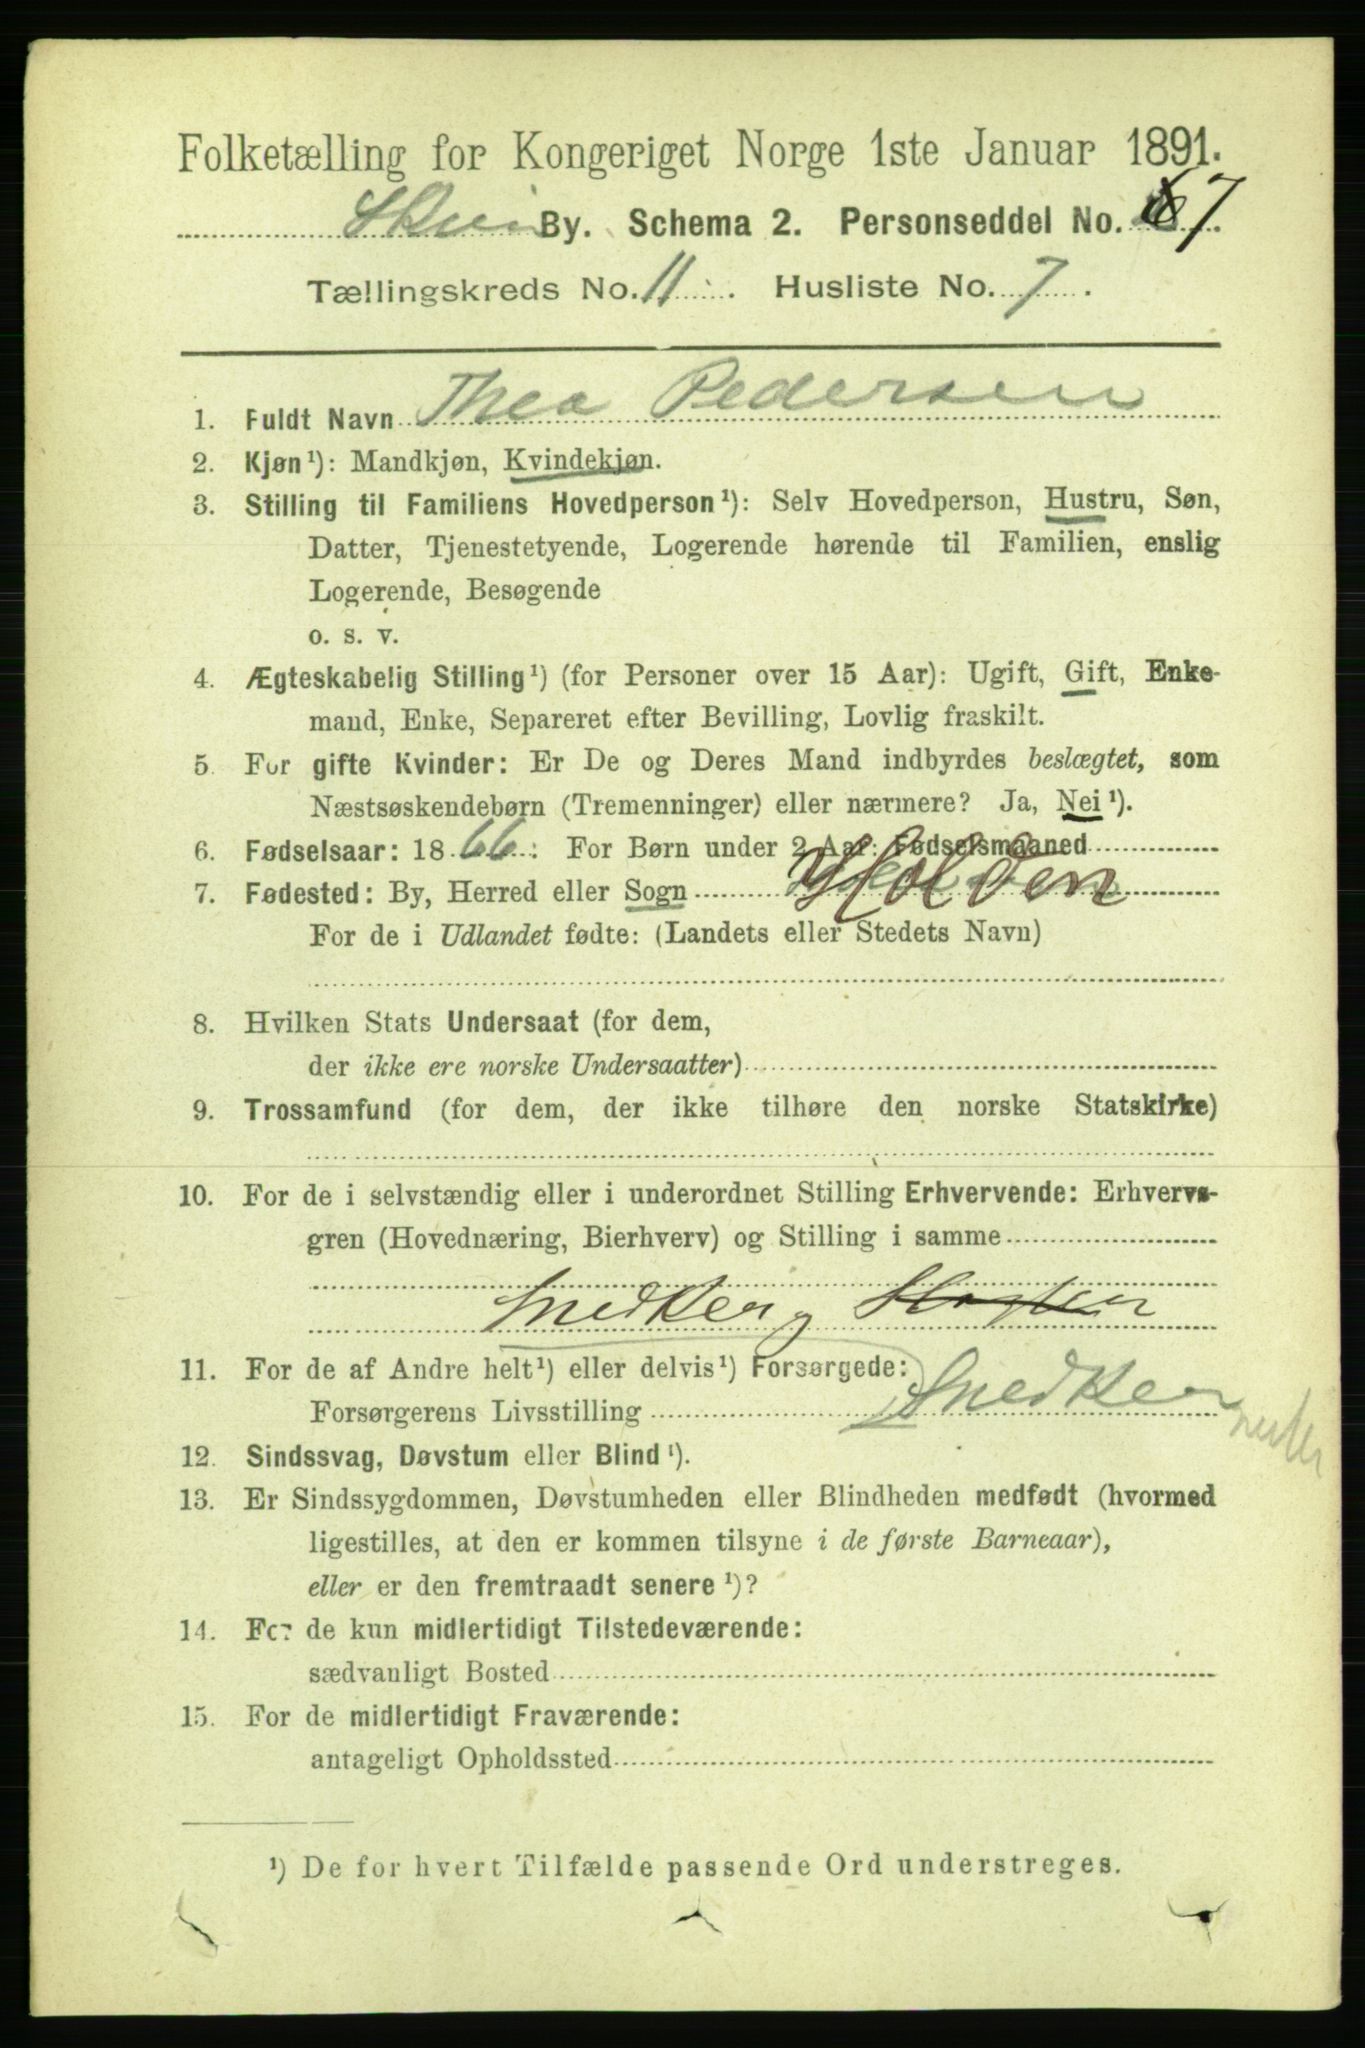 Folketælling for Kongeriget Norge 1ste Januar 1891.
Skien By. Schema 2. Personseddel No. 7.
Tællingskreds No. 11. Husliste No. 7.
1. Fuldt Navn Thea Pedersen
2. Kjøn ¹): Mandkjøn, Kvindekjøn.
3. Stilling til Familiens Hovedperson ¹): Selv Hovedperson, Hustru, Søn,
Datter, Tjenestetyende, Logerende hørende til Familien, enslig
Logerende, Besøgende
o. s. v.
4. Ægteskabelig Stilling ¹) (for Personer over 15 Aar): Ugift, Gift, Enke-
mand, Enke, Separeret efter Bevilling, Lovlig fraskilt.
5. For gifte Kvinder: Er De og Deres Mand indbyrdes beslægtet, som
Næstsøskendebørn (Tremenninger) eller nærmere? Ja, Nei ¹).
6. Fødselsaar: 1866: For Børn under 2 Aar: Fødselsmaaned
7. Fødested: By, Herred eller Sogn Holden
For de i Udlandet fødte: (Landets eller Stedets Navn)
8. Hvilken Stats Undersaat (for dem,
der ikke ere norske Undersaatter)
9. Trossamfund (for dem, der ikke tilhøre den norske Statskirke)
10. For de i selvstændig eller i underordnet Stilling Erhvervende: Erhvervs-
gren (Hovednæring, Bierhverv) og Stilling i samme
Snedker
11. For de af Andre helt ¹) eller delvis ¹) Forsørgede:
Forsørgerens Livsstilling Snedker
12. Sindssvag, Døvstum eller Blind ¹).
13. Er Sindssygdommen, Døvstumheden eller Blindheden medfødt (hvormed
ligestilles, at den er kommen tilsyne i de første Barneaar),
eller er den fremtraadt senere ¹)?
14. For de kun midlertidigt Tilstedeværende:
sædvanligt Bosted
15. For de midlertidigt Fraværende:
antageligt Opholdssted
¹) De for hvert Tilfælde passende Ord understreges.